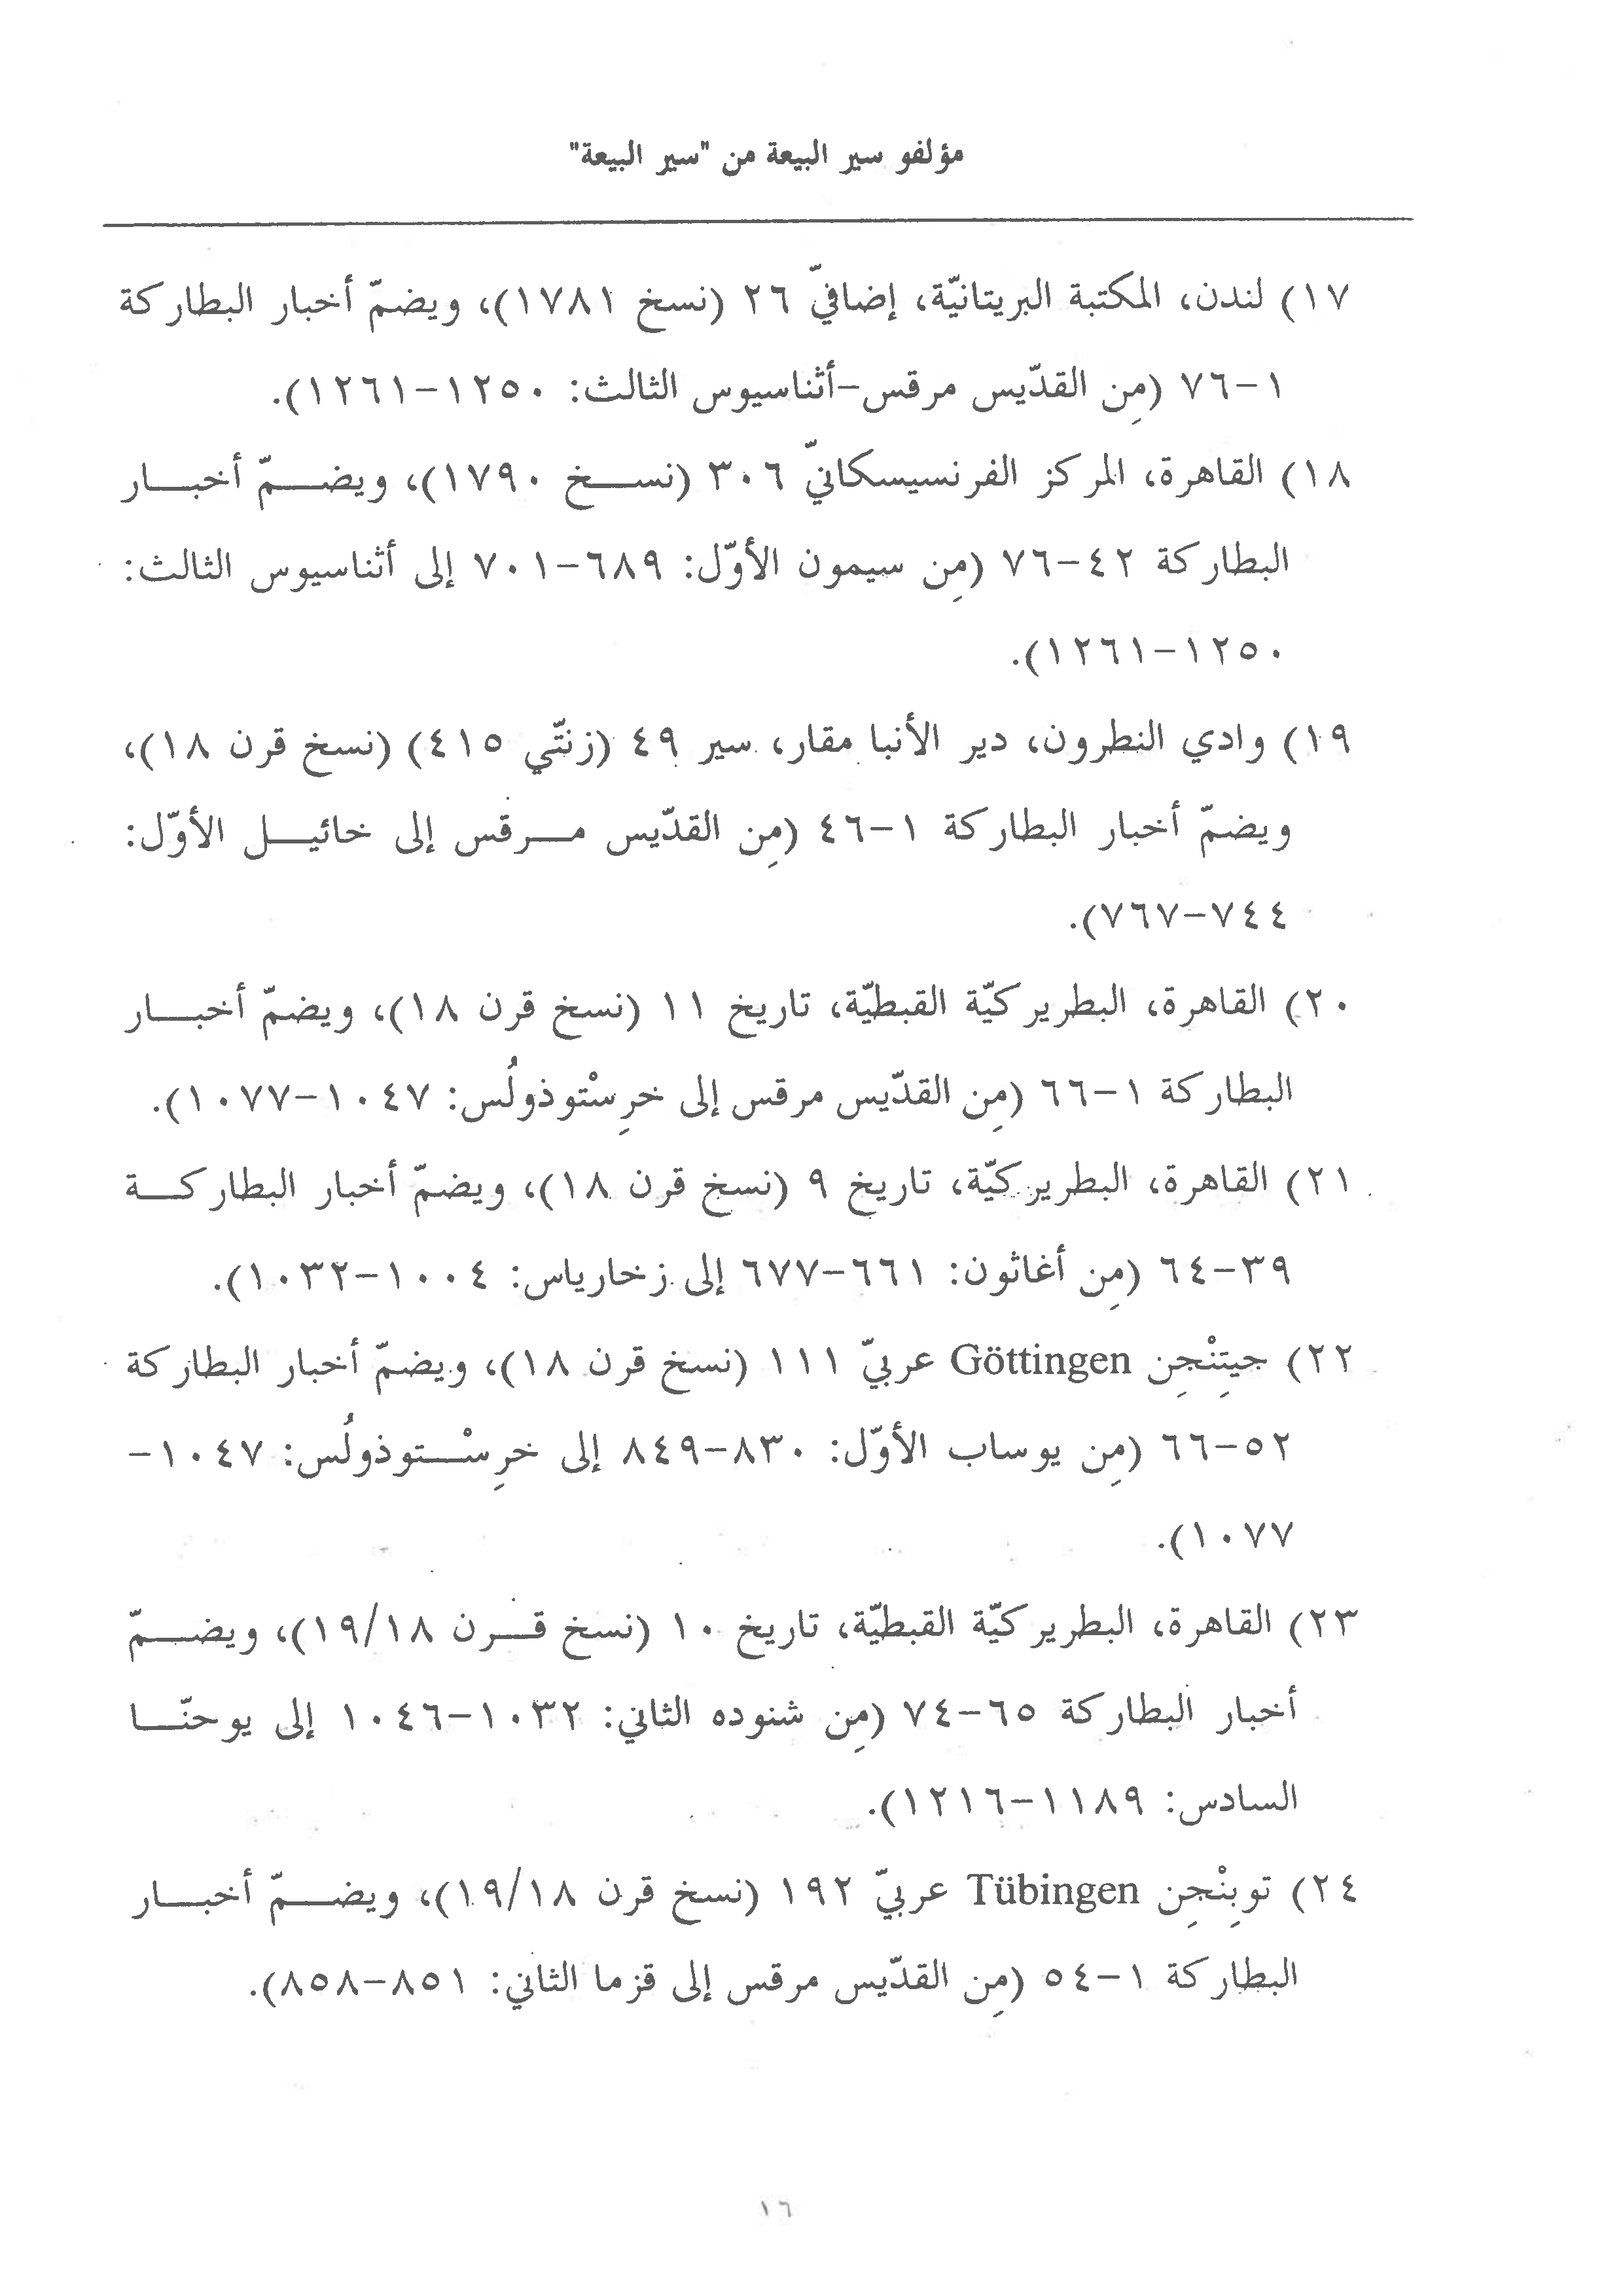 مؤلفو سير البيعة من "سير البيعة"
١٧) لندن، المكتبة البريتانيّة، إضافيّ ٢٦ (نسخ ١٧٨١)، ويضمّ أخبار البطاركة
١-٧٦ (مِن القدّيس مرقس-أثناسيوس الثالث: ١٢٥٠-١٢٦١).
١٨) القاهرة، المركز الفرنسيسكانيّ ٣٠٦ (نســخ ١٧٩٠)، ويضـــمّ أخبـــار
البطاركة ٤٢-٧٦ (مِن سيمون الأوّل: ٦٨٩-٧٠١ إلى أثناسيوس الثالث:
١٢٥٠-١٢٦١).
١٩) وادي النطرون، دير الأنبا مقار، سير ٤٩ (زنتّي ٤١٥) (نسخ قرن ١٨)،
ويضمّ أخبار البطاركة ١-٤٦ (مِن القدّيس مــرقس إلى خائيــل الأوّل:
٧٤٤-٧٦٧).
٢٠) القاهرة، البطريركيّة القبطيّة، تاريخ ١١ (نسخ قرن ١٨)، ويضمّ أخبـــار
البطاركة ١-٦٦ (مِن القدّيس مرقس إلى خرِسْتوذولُس: ١٠٤٧-١٠٧٧).
٢١) القاهرة، البطريركيّة، تاريخ ٩ (نسخ قرن ١٨)، ويضمّ أخبار البطاركـــة
٣٩-٦٤ (مِن أغاثون: ٦٦١-٦٧٧ إلى زخارياس: ١٠٠٤-١٠٣٢).
٢٢) جيتِنْجِن Göttingen عربيّ ١١١ (نسخ قرن ١٨)، ويضمّ أخبار البطاركة
٥٢-٦٦ (مِن يوساب الأوّل: ٨٣٠-٨٤٩ إلى خرِسْــتوذولُس: ١٠٤٧-
١٠٧٧).
٢٣) القاهرة، البطريركيّة القبطيّة، تاريخ ١٠ (نسخ قــرن ١٩/١٨)، ويضـــمّ
أخبار البطاركة ٦٥-٧٤ (مِن شنوده الثاني: ١٠٣٢-١٠٤٦ إلى يوحنّـــا
السادس: ١١٨٩-١٢١٦).
٢٤) توبِنْجِن Tübingen عربيّ ١٩٢ (نسخ قرن ١٩/١٨)، ويضـــمّ أخبـــار
البطاركة ١-٥٤ (مِن القدّيس مرقس إلى قزما الثاني: ٨٥١-٨٥٨).
١٦